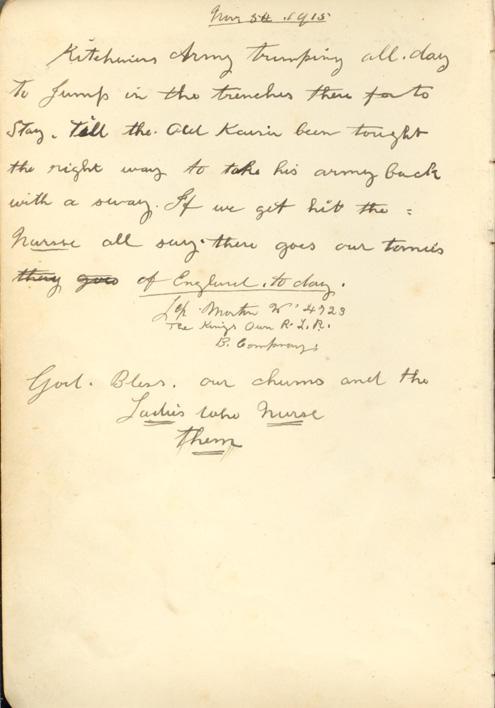 Nov 5th 1915
Kitcheners Army tramping all day
to Jump in the trenches there for to
Stay. Till the Old Kaiser been tought
the right way to take his army back
with a sway. If we get hit the =
Nurse all say there goes our tomies
they goes of England. to day.
Martin W 4723
The Kings Own R. L. R.
B. Company.
God. Bless. our chums and the
Ladies who Nurse
them